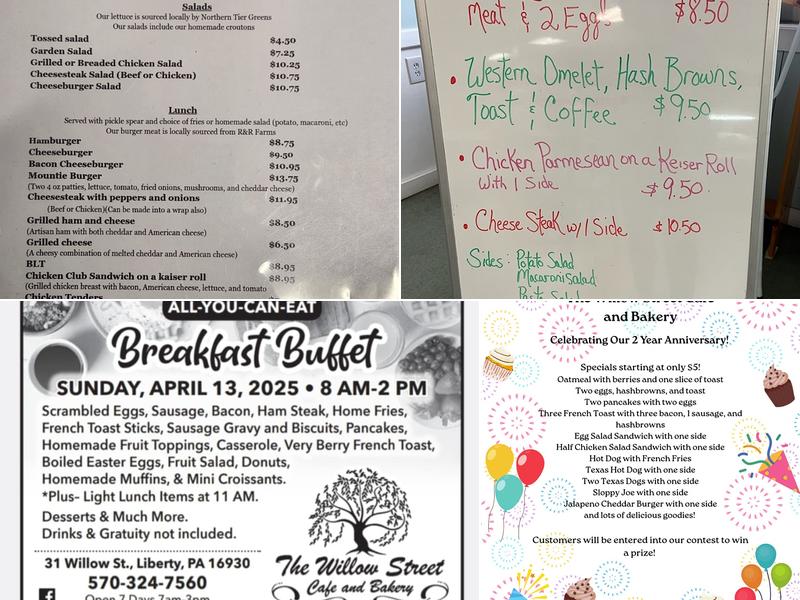 Salads
Our lettuce is sourced locally by Northern Tier Greens
Our salads include our homemade croutons
Tossed salad $4.50
Garden Salad $7.25
Grilled or Breaded Chicken Salad $10.25
Cheesesteak Salad (Beef or Chicken) $10.75
Cheeseburger Salad $10.75
Lunch
Served with pickle spear and choice of fries or homemade salad (potato, macaroni, etc)
Our burger meat is locally sourced from R&R Farms
Hamburger $8.75
Cheeseburger $9.50
Bacon Cheeseburger $10.95
Mountie Burger $13.75
(Two 4 oz patties, lettuce, tomato, fried onions, mushrooms, and cheddar cheese)
Cheesesteak with peppers and onions $11.95
(Beef or Chicken)(Can be made into a wrap also)
Grilled ham and cheese $8.50
(Artisan ham with both cheddar and American cheese)
Grilled cheese $6.50
(A cheesy combination of melted cheddar and American cheese)
BLT $8.95
Chicken Club Sandwich on a kaiser roll $8.95
(Grilled chicken breast with bacon, American cheese, lettuce, and tomato
Chicken Tenders
Meat & 2 Egg's $8.50
• Western Omelet, Hash Browns,
Toast & Coffee $9.50
• Chicken Parmesean on a Keiser Roll
With 1 Side $9.50
• Cheese Steak w/ 1 Side $10.50
Sides: Potato Salad
Macaroni Salad
Pasta Salad
ALL-YOU-CAN-EAT
Breakfast Buffet
SUNDAY, APRIL 13, 2025 • 8 AM-2 PM
Scrambled Eggs, Sausage, Bacon, Ham Steak, Home Fries,
French Toast Sticks, Sausage Gravy and Biscuits, Pancakes,
Homemade Fruit Toppings, Casserole, Very Berry French Toast,
Boiled Easter Eggs, Fruit Salad, Donuts,
Homemade Muffins, & Mini Croissants.
*Plus- Light Lunch Items at 11 AM.
Desserts & Much More.
Drinks & Gratuity not included.
31 Willow St., Liberty, PA 16930
570-324-7560
Open 7 Days 7am-3pm
The Willow Street
Cafe and Bakery
The Willow Street Cafe
and Bakery
Celebrating Our 2 Year Anniversary!
Specials starting at only $5!
Oatmeal with berries and one slice of toast
Two eggs, hashbrowns, and toast
Two pancakes with two eggs
Three French Toast with three bacon, 1 sausage, and
hashbrowns
Egg Salad Sandwich with one side
Half Chicken Salad Sandwich with one side
Hot Dog with French Fries
Texas Hot Dog with one side
Two Texas Dogs with one side
Sloppy Joe with one side
Jalapeno Cheddar Burger with one side
and lots of delicious goodies!
Customers will be entered into our contest to win
a prize!